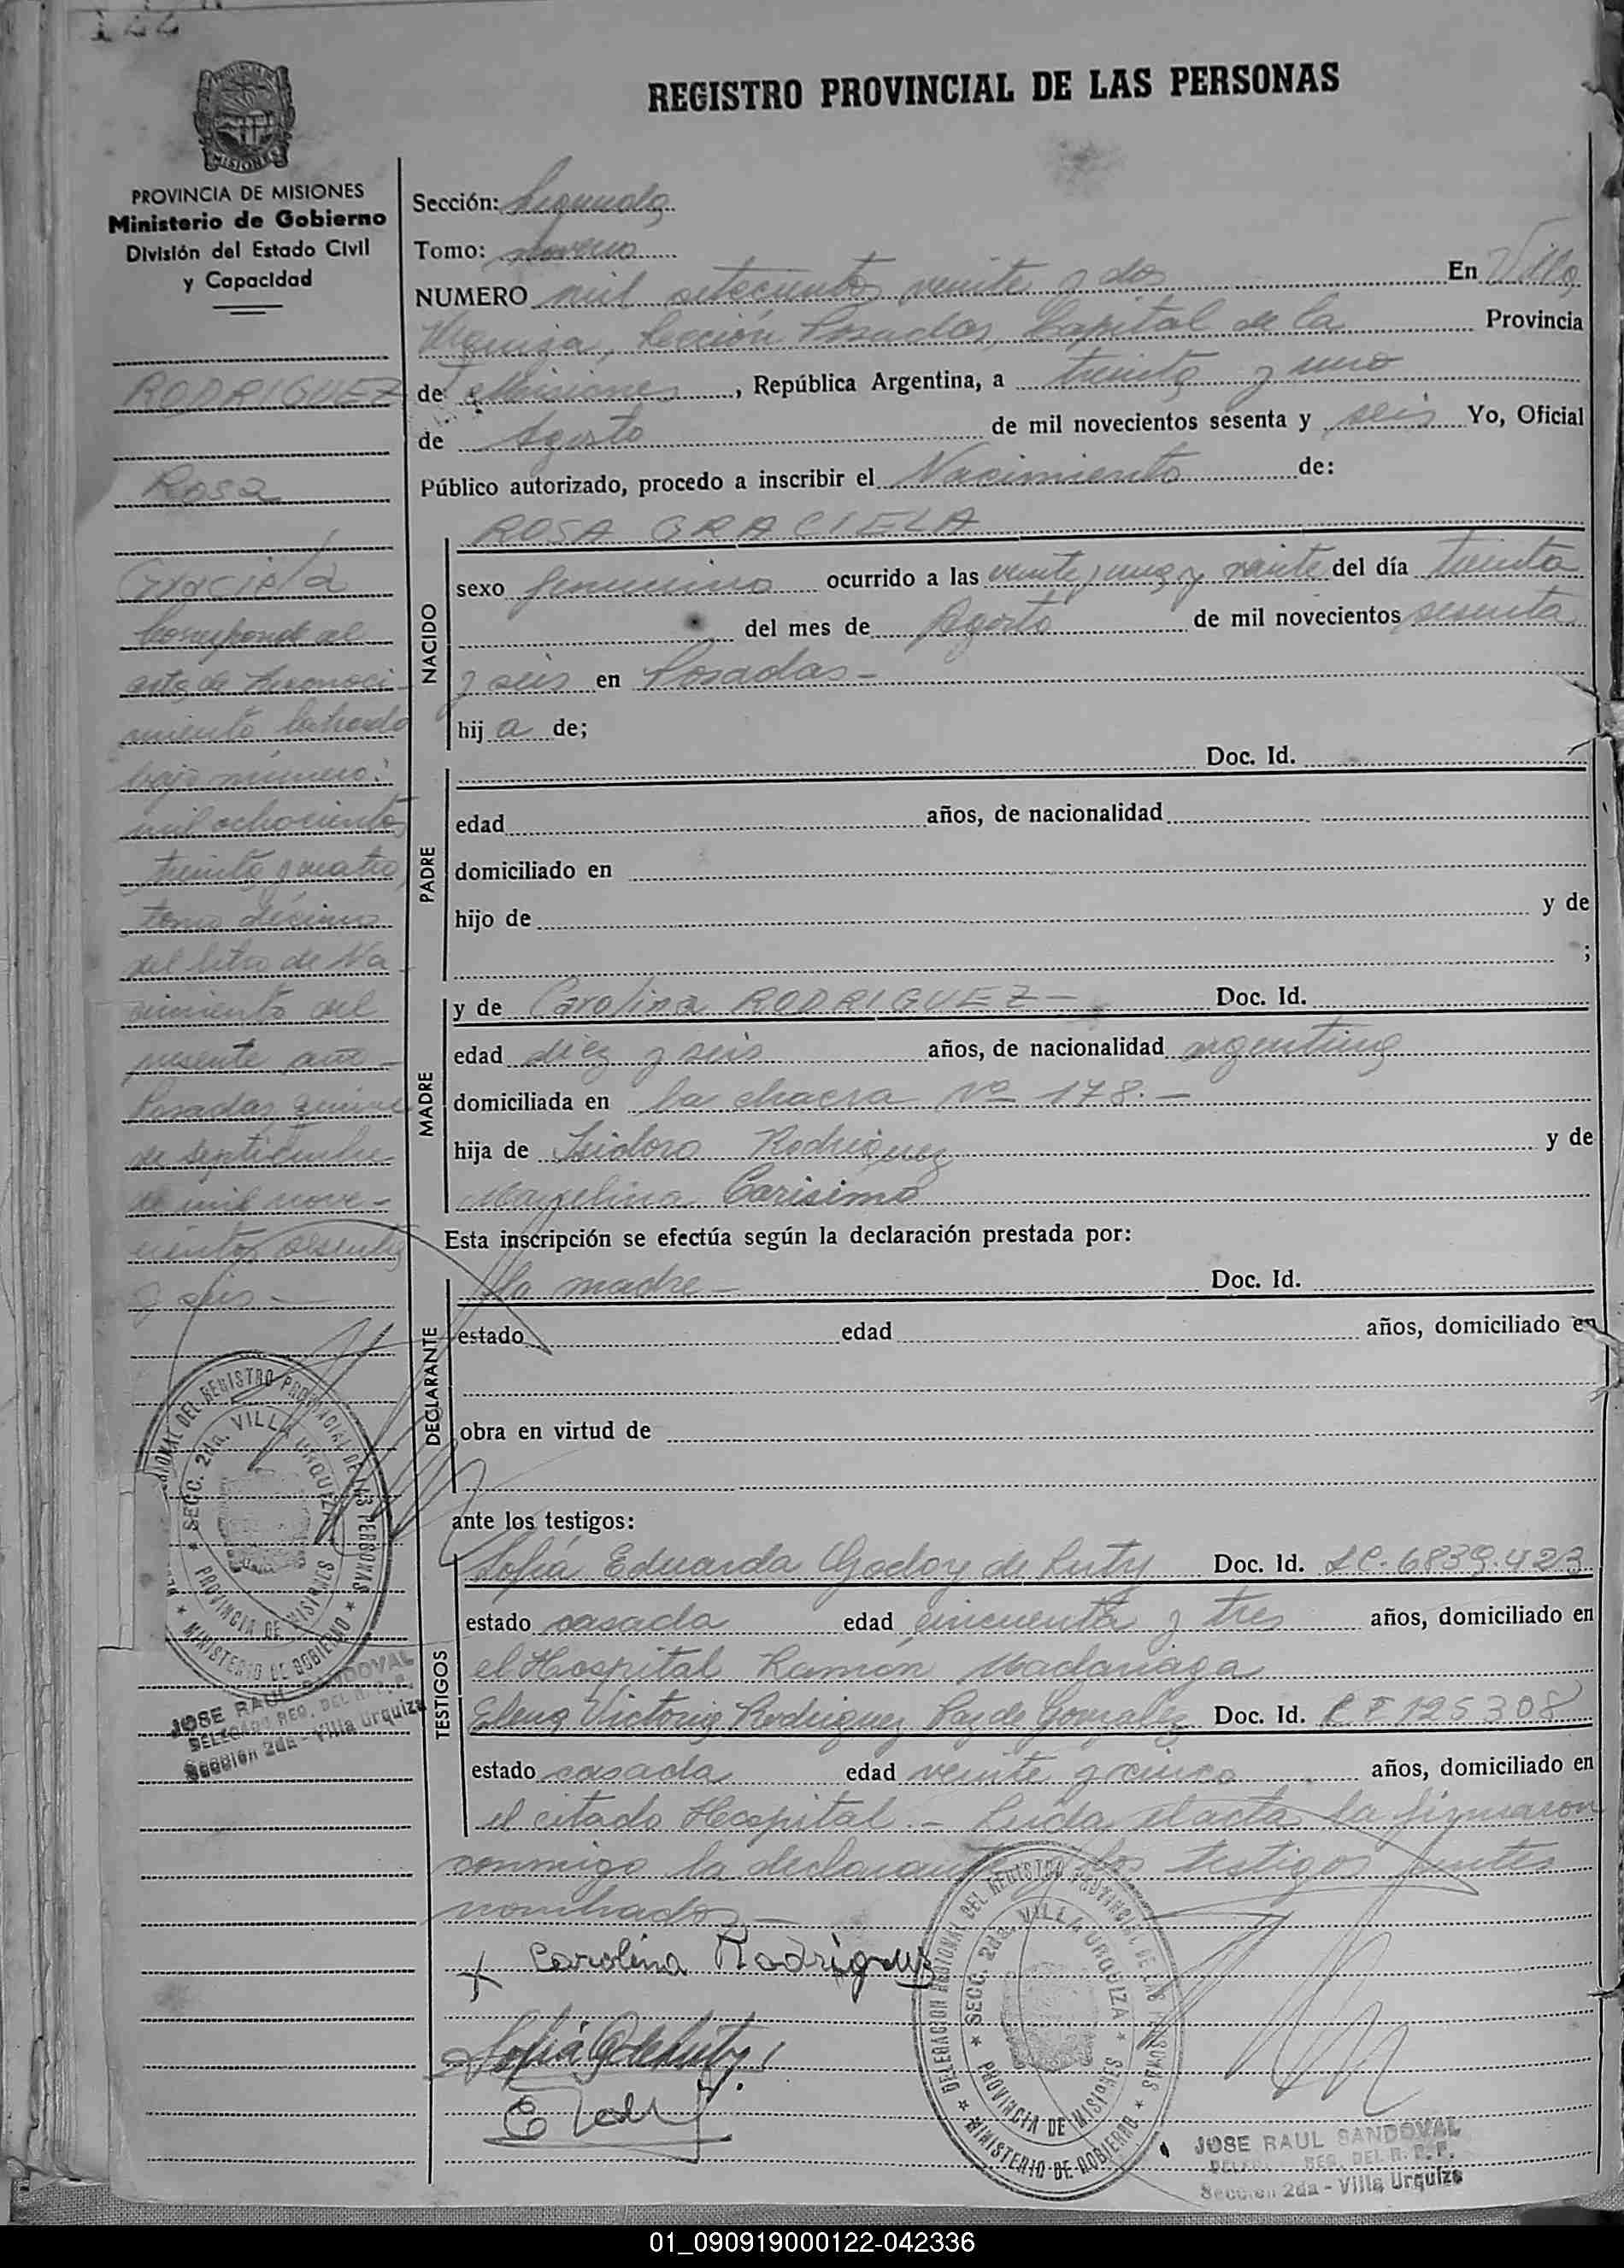 REGISTRO PROVINCIAL DE LAS PERSONAS
MISIONES
PROVINCIA DE MISIONES
Ministerio de Gobierno
División del Estado Civil
y Capacidad
RODRIGUEZ
Rosa
Graciela
Corresponde al
acta de Reconoci-
miento labrado
bajo número:
mil ochocientos
treinta y cuatro,
tomo décimo
del libro de Na-
cimiento del
presente año -
Posadas quince
de septiembre
de mil nove-
cientos sesenta
y seis. -
Sección: Segunda
Tomo: noveno
NUMERO mil setecientos veinte y dos En Villa
Urquiza, Sección Posadas, Capital de la Provincia
de Misiones, República Argentina, a treinta y uno
de Agosto de mil novecientos sesenta y seis Yo, Oficial
Público autorizado, procedo a inscribir el Nacimiento de:
ROSA GRACIELA
NACIDO
sexo femenino ocurrido a las veinte y una y veinte del día treinta
del mes de Agosto de mil novecientos sesenta
y seis en Posadas -
hij a de;
PADRE
Doc. Id.
edad años, de nacionalidad
domiciliado en
hijo de y de
;
MADRE
y de Carolina RODRIGUEZ - Doc. Id.
edad diez y seis años, de nacionalidad argentina
domiciliada en la chacra Nº 178. -
hija de Isidoro Rodriguez y de
Carisimo
Esta inscripción se efectúa según la declaración prestada por:
DECLARANTE
la madre - Doc. Id.
estado edad años, domiciliado en
obra en virtud de
ante los testigos:
TESTIGOS
Sofía Eduarda Godoy de Luty Doc. Id. LC. 6839.423
estado casada edad cincuenta y tres años, domiciliado en
el Hospital Ramón Madariaga
Elena Victoria Rodriguez Paz de Gonzalez Doc. Id. 125308
estado casada edad veinte y cinco años, domiciliado en
el citado Hospital. - Leida el acta la firmaron
conmigo la declarante y los testigos
nombrados -
x Carolina Rodriguez
DELEGACION REGIONAL DEL REGISTRO PROVINCIAL DE LAS PERSONAS
SECC. 2da. VILLA URQUIZA
PROVINCIA DE MISIONES
MINISTERIO DE GOBIERNO
JOSE RAUL SANDOVAL
DELEGADO REG. DEL R. P. P.
Sección 2da - Villa Urquiza
DELEGACION REGIONAL DEL REGISTRO PROVINCIAL DE LAS PERSONAS
SECC. 2da. VILLA URQUIZA
PROVINCIA DE MISIONES
MINISTERIO DE GOBIERNO
JOSE RAUL SANDOVAL
REG. DEL R. P. P.
Sección 2da - Villa Urquiza
01_090919000122-042336